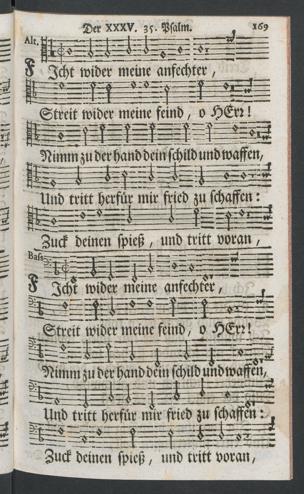 Der XXXV. 35. Psalm. 169
Alt.
FJcht wider meine anfechter,
Streit wider meine feind, o HErr!
Nimm zu der hand dein schild und waffen,
Und tritt herfür mir fried zu schaffen:
Zuck deinen spieß, und tritt voran,
Bass.
FJcht wider meine anfechter,
Streit wider meine feind, o HErr!
Nimm zu der hand dein schild und waffen,
Und tritt herfür mir fried zu schaffen:
Zuck deinen spieß, und tritt voran,